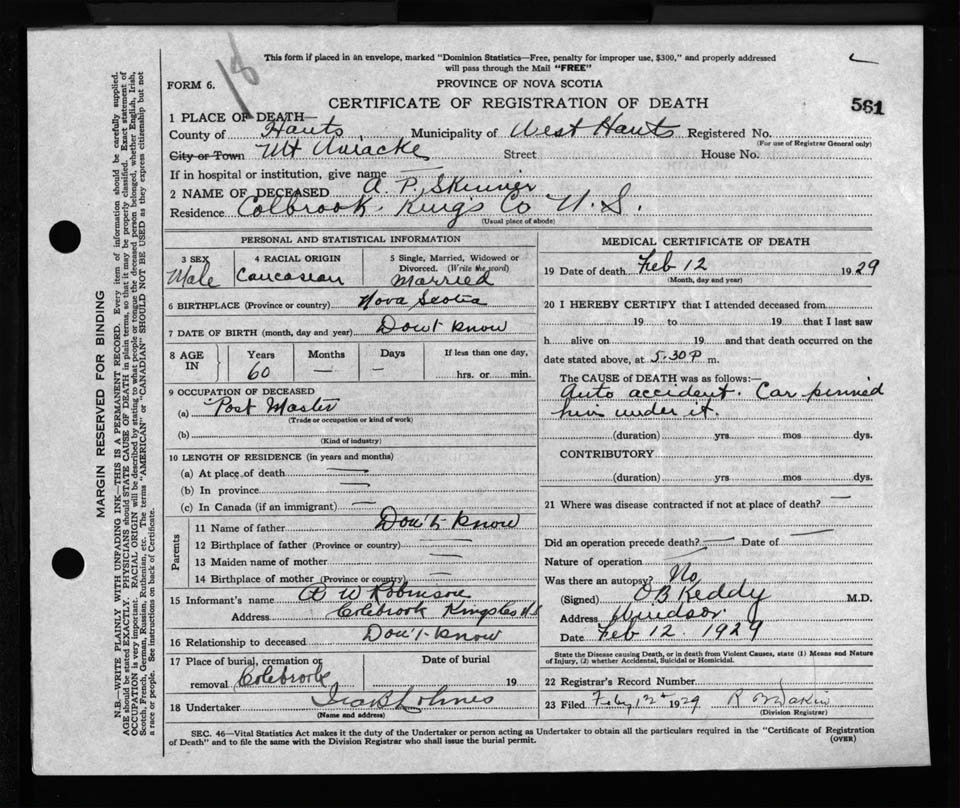 18
This form if placed in an envelope, marked "Dominion Statistics—Free, penalty for improper use, $300," and properly addressed
will pass through the Mail "FREE"
FORM 6.
PROVINCE OF NOVA SCOTIA
CERTIFICATE OF REGISTRATION OF DEATH
561
1 PLACE OF DEATH—
County of Hants, Municipality of West Hants Registered No.
(For use of Registrar General only)
City or Town Mt Uniacke Street House No.
If in hospital or institution, give name —
2 NAME OF DECEASED A. P. Skinner
Residence Colbrook Kings Co N. S.
(Usual place of abode)
PERSONAL AND STATISTICAL INFORMATION
3 SEX
Male
4 RACIAL ORIGIN
Caucasean
5 Single, Married, Widowed or
Divorced. (Write the word)
Married
6 BIRTHPLACE (Province or country) Nova Scotia
7 DATE OF BIRTH (month, day and year) Don't know
8 AGE IN
Years Months Days If less than one day,
60 — — hrs. or min.
9 OCCUPATION OF DECEASED
(a) Post Master
(Trade or occupation or kind of work)
(b)
(Kind of industry)
10 LENGTH OF RESIDENCE (in years and months)
(a) At place of death —
(b) In province —
(c) In Canada (if an immigrant) —
Parents
11 Name of father Don't know
12 Birthplace of father (Province or country) —
13 Maiden name of mother —
14 Birthplace of mother (Province or country) —
15 Informant's name W Robinson
Address Colebrook Kings Co N.S
16 Relationship to deceased Don't know
17 Place of burial, cremation or Date of burial
removal Colebrook 19
18 Undertaker
(Name and address)
MEDICAL CERTIFICATE OF DEATH
19 Date of death Feb 12 1929
(Month, day and year)
20 I HEREBY CERTIFY that I attended deceased from
19 to 19 that I last saw
h alive on 19 and that death occurred on the
date stated above, at 5.30 P m.
The CAUSE OF DEATH was as follows:—
Auto accident. Car pinned
him under it.
(duration) yrs mos dys.
CONTRIBUTORY
(duration) yrs mos dys.
21 Where was disease contracted if not at place of death? —
Did an operation precede death? — Date of —
Nature of operation
Was there an autopsy? No
(Signed) O B Keddy M.D.
Address Windsor
Date Feb 12. 1929
State the Disease causing Death, or in death from Violent Causes, state (1) Means and Nature
of Injury, (2) whether Accidental, Suicidal or Homicidal.
22 Registrar's Record Number
23 Filed Feby 12th 1929
(Division Registrar)
SEC. 46—Vital Statistics Act makes it the duty of the Undertaker or person acting as Undertaker to obtain all the particulars required in the "Certificate of Registration
of Death" and to file the same with the Division Registrar who shall issue the burial permit.
(OVER)
MARGIN RESERVED FOR BINDING
N.B.—WRITE PLAINLY WITH UNFADING INK—THIS IS A PERMANENT RECORD. Every item of information should be carefully supplied.
AGE should be stated EXACTLY. PHYSICIANS should STATE CAUSE OF DEATH in plain terms, so that it may be properly classified. Exact statement of
OCCUPATION is very important. RACIAL ORIGIN will be described by stating to what people or tongue the deceased person belonged, whether English, Irish,
Scotch, French, German, Russian, Ruthenian, etc. The terms "AMERICAN" or "CANADIAN" SHOULD NOT BE USED as they express citizenship but not
a race or people. See instructions on back of Certificate.